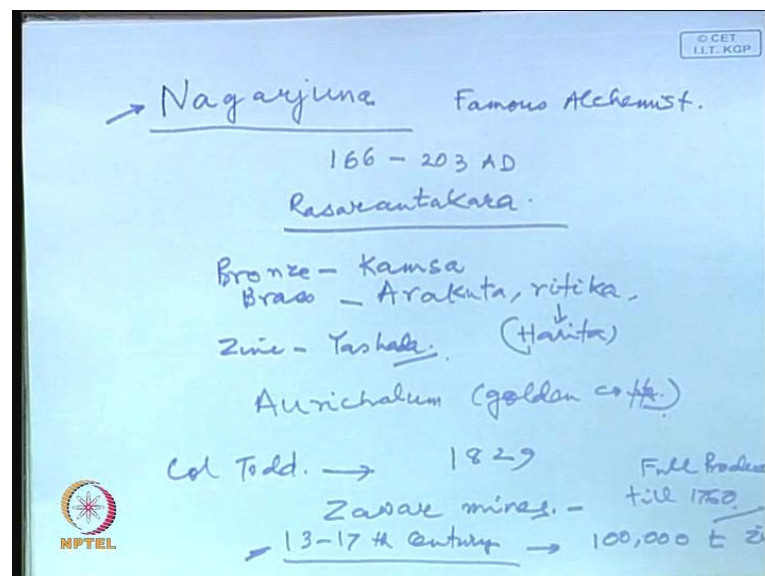 © CET
I.I.T. KGP
→ Nagarjuna Famous Alchemist.
166 – 203 AD
Rasarantakara.
Bronze – Kamsa
Brass – Arakuta, ritika,
↓
Zinc – Yashada. (Harita)
Aurichalum (golden
Col Todd. → 1829 Full Produc
Zawar mines. – till 1760
13–17 th Century → 100,000 t Zi
NPTEL